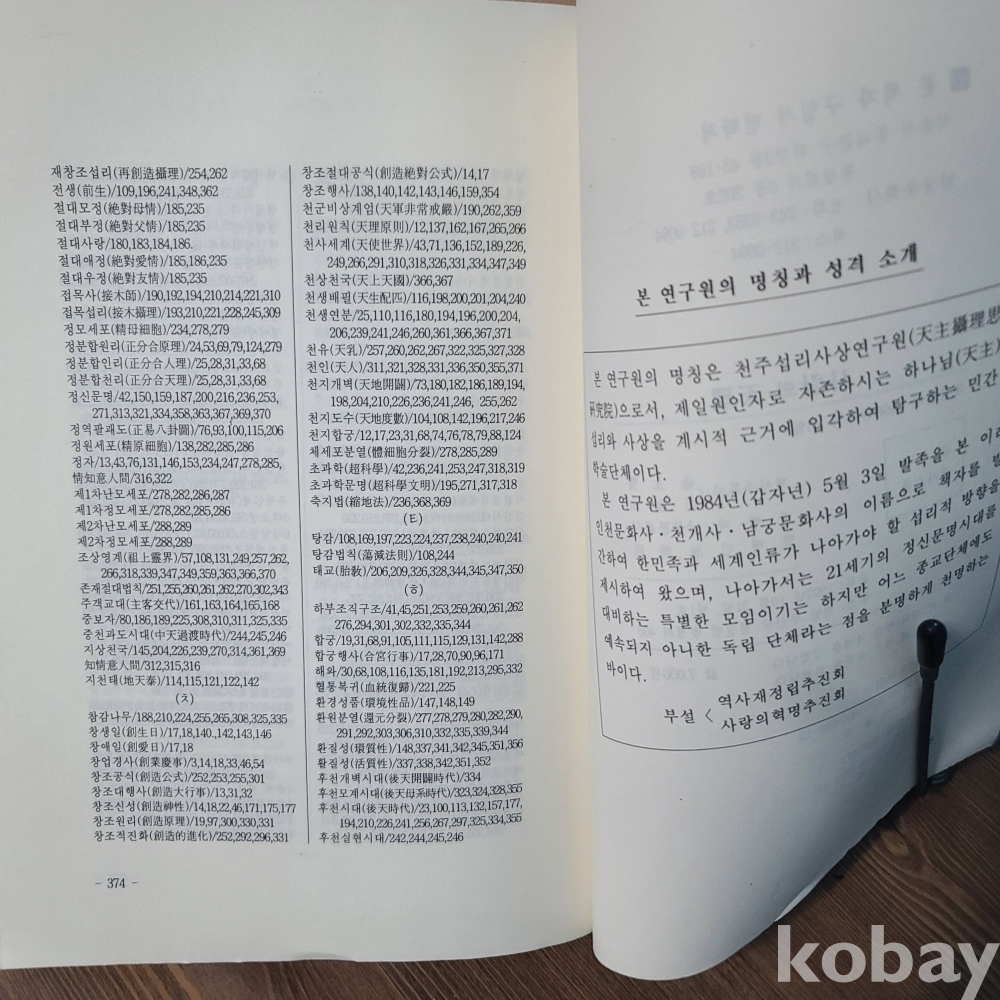 재창조섭리(再創造攝理)/254,262
전생(前生)/109,196,241,348,362
절대모정(絶對母情)/185,235
절대부정(絶對父情)/185,235
절대사랑/180,183,184,186.
절대애정(絶對愛情)/185,186,235
절대우정(絶對友情)/185,235
접목사(接木師)/190,192,194,210,214,221,310
접목섭리(接木攝理)/193,210,221,228,245,309
정모세포(精母細胞)/234,278,279
정분합원리(正分合原理)/24,53,69,79,124,279
정분합인리(正分合人理)/25,28,31,33,68
정분합천리(正分合天理)/25,28,31,33,68
정신문명/42,150,159,187,200,216,236,253,
271,313,321,334,358,363,367,369,370
정역팔괘도(正易八卦圖)/76,93,100,115,206
정원세포(精原細胞)/138,282,285,286
정자/13,43,76,131,146,153,234,247,278,285,
情知意人間/316,322
제1차난모세포/278,282,286,287
제1차정모세포/278,282,285,286
제2차난모세포/288,289
제2차정모세포/288,289
조상영계(祖上靈界)/57,108,131,249,257,262,
266,318,339,347,349,359,363,366,370
존재절대법칙/251,255,260,261,262,270,302,343
주객교대(主客交代)/161,163,164,165,168
중보자/80,186,189,225,308,310,311,325,335
중천과도시대(中天過渡時代)/244,245,246
지상천국/145,204,226,239,270,314,361,369
知情意人間/312,315,316
지천태(地天泰)/114,115,121,122,142
(ㅊ)
참감나무/188,210,224,255,265,308,325,335
창생일(創生日)/17,18,140,,142,143,146
창애일(創愛日)/17,18
창업경사(創業慶事)/3,14,18,33,46,54
창조공식(創造公式)/252,253,255,301
창조대행사(創造大行事)/13,31,32
창조신성(創造神性)/14,18,22,46,171,175,177
창조원리(創造原理)/19,97,300,330,331
창조적진화(創造的進化)/252,292,296,331
- 374 -
창조절대공식(創造絶對公式)/14,17
창조행사/138,140,142,143,146,159,354
천군비상계엄(天軍非常戒嚴)/190,262,359
천리원칙(天理原則)/12,137,162,167,265,266
천사세계(天使世界)/43,71,136,152,189,226,
249,266,291,310,318,326,331,334,347,349
천상천국(天上天國)/366,367
천생배필(天生配匹)/116,198,200,201,204,240
천생연분/25,110,116,180,194,196,200,204,
206,239,241,246,260,361,366,367,371
천유(天乳)/257,260,262,267,322,325,327,328
천인(天人)/311,321,328,331,336,350,355,371
천지개벽(天地開闢)/73,180,182,186,189,194,
198,204,210,226,236,241,246, 255,262
천지도수(天地度數)/104,108,142,196,217,246
천지합궁/12,17,23,31,68,74,76,78,79,88,124
체세포분열(體細胞分裂)/278,285,289
초과학(超科學)/42,236,241,253,247,318,319
초과학문명(超科學文明)/195,271,317,318
축지법(縮地法)/236,368,369
(ㅌ)
탕감/108,169,197,223,224,237,238,240,240,241
탕감법칙(蕩減法則)/108,244
태교(胎敎)/206,209,326,328,344,345,347,350
(ㅎ)
하부조직구조/41,45,251,253,259,260,261,262
276,294,301,302,332,335,344
합궁/19,31,68,91,105,111,115,129,131,142,288
합궁행사(合宮行事)/17,28,70,90,96,171
해와/30,68,108,116,135,181,192,213,295,332
혈통복귀(血統復歸)/221,225
환경성품(環境性品)/147,148,149
환원분열(還元分裂)/277,278,279,280,282,290,
291,292,303,306,310,332,335,339,344
환질성(環質性)/148,337,341,342,345,351,356
활질성(活質性)/337,338,342,351,352
후천개벽시대(後天開闢時代)/334
후천모계시대(後天母系時代)/323,324,328,355
후천시대(後天時代)/23,100,113,132,157,177,
194,210,226,241,256,267,297,325,334,355
후천실현시대/242,244,245,246
본 연구원의 명칭과 성격 소개
본 연구원의 명칭은 천주섭리사상연구원(天主攝理思
研究院)으로서, 제일원인자로 자존하시는 하나님(天主)
섭리와 사상을 계시적 근거에 입각하여 탐구하는 민간
학술단체이다.
본 연구원은 1984년(갑자년) 5월 3일 발족을 본 이래
인천문화사·천개사·남궁문화사의 이름으로 책자를 발
간하여 한민족과 세계인류가 나아가야 할 섭리적 방향을
제시하여 왔으며, 나아가서는 21세기의 정신문명시대를
대비하는 특별한 모임이기는 하지만 어느 종교단체에도
예속되지 아니한 독립 단체라는 점을 분명하게 천명하는
바이다.
부설 < 역사재정립추진회
사랑의혁명추진회
kobay